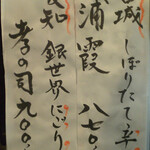 城 しぼりたて
浦霞 八七〇
知 銀世界にごり
孝の司 九〇〇